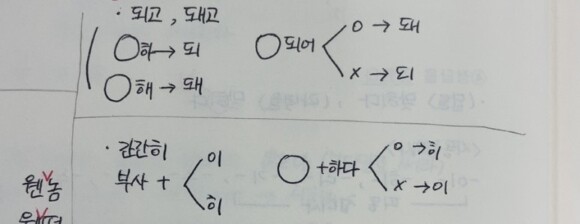 · 되고 , 돼고
○하 → 되 ○되어 o → 돼
○해 → 돼 x → 되
· 간간히 이 ○+하다 o → 히
부사 + 히 x → 이
웬∨놈